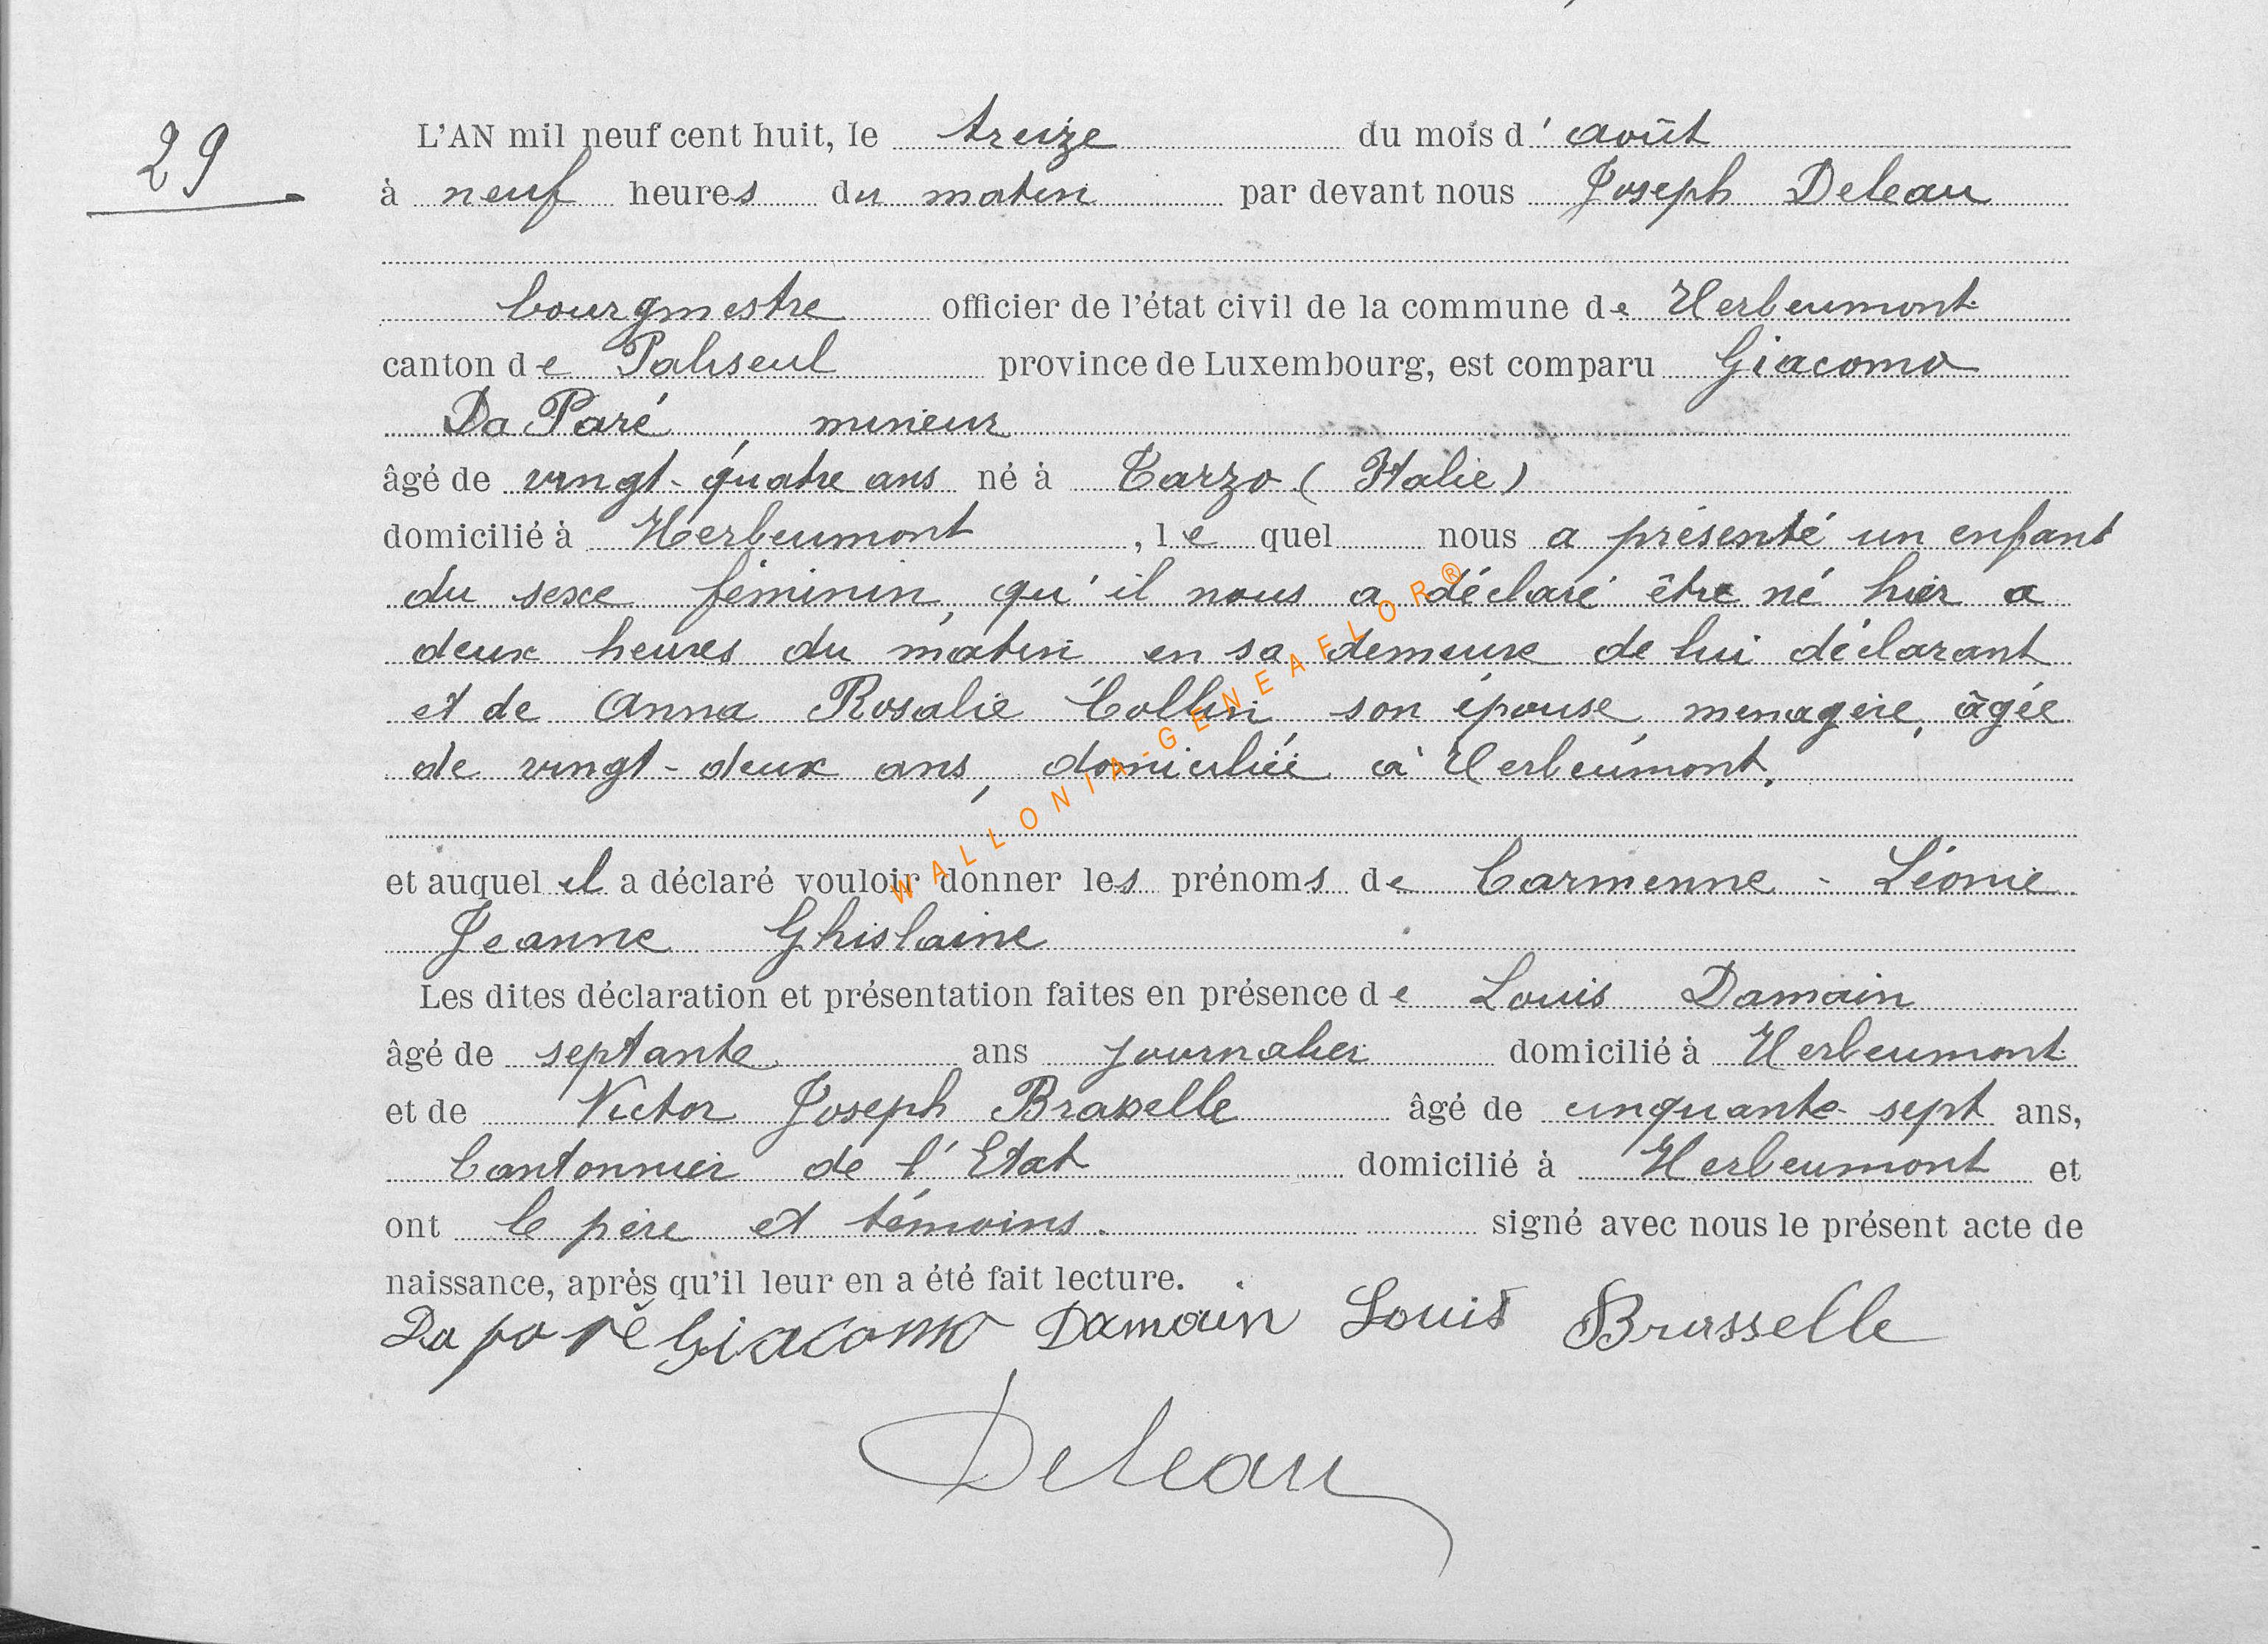 29
L'AN mil neuf cent huit, le treize du mois d'août
à neuf heures du matin par devant nous Joseph Deleau
bourgmestre officier de l'état civil de la commune de Herbeumont
canton de Paliseul province de Luxembourg, est comparu Giacomo
Da Paré, mineur
âgé de vingt-quatre ans né à Tarzo (Italie)
domicilié à Herbeumont, lequel nous a présenté un enfant
du sexe féminin, qu'il nous a déclaré être né hier a
deux heures du matin en sa demeure de lui déclarant
et de Anna Rosalie Collin, son épouse, menagère, âgée
de vingt-deux ans, domiciliée à Herbeumont.
et auquel il a déclaré vouloir donner les prénoms de Carmenne - Léonie
Jeanne Ghislaine
Les dites déclaration et présentation faites en présence de Louis Damain
âgé de septante ans journalier domicilié à Herbeumont
et de Victor Joseph Brasselle âgé de cinquante-sept ans,
Cantonnier de l'Etat domicilié à Herbeumont et
ont le père et témoins. signé avec nous le présent acte de
naissance, après qu'il leur en a été fait lecture.
Da paré Giacomo Damain Louis Brasselle
Deleau
WALLONIA-GENEAFLOR®